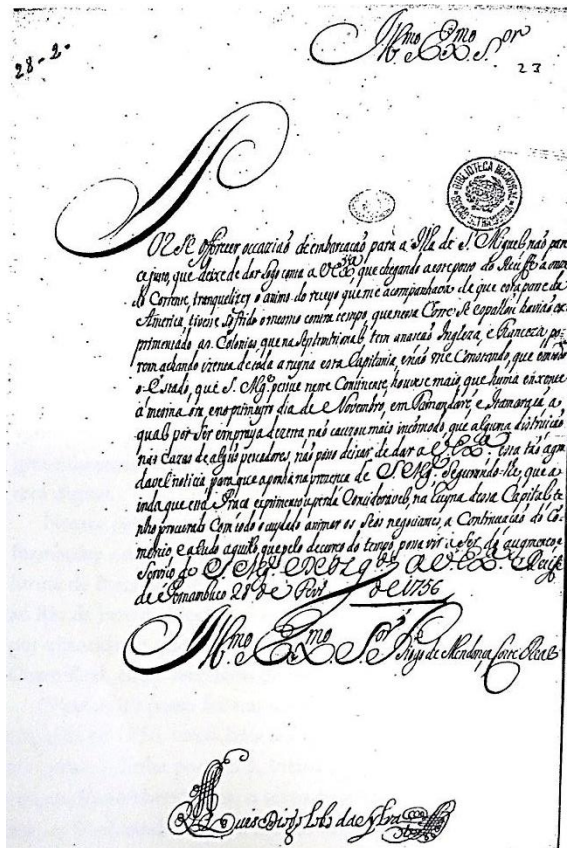 28-2-
Illmo. Exmo. Sor.
23
BIBLIOTECA NACIONAL
Or se offrecer occaziaõ de embarcaçaõ para a Ilha de S. Miguel naõ pare
ce justo, que deixe de dar logo conta a V Exa. que chegando a este porto do Reciffe a onze
do Corrente, tranquelizey o animo do receyo que me acompanhava de que esta parte da
America, tivese sofrido o mesmo contratempo, que nesa Corte Se espalhou haviaõ ex
primentado as Colonias que na Septentrional tem a naçaõ Ingleza, e Franceza po
rem achando izenta de toda a ruina esta Capitania, e naõ me Constando, que em todo
o Estado, que S. Mge. pesue neste Continente, houvese mais, que huma enxente
á mesma ora, e no primeyro dia de Novembro, em Tamandaré, e Itamaracá, a
qual por Ser em praya dezerta naõ cauzou mais incomodo que alguma distruiçaõ
nas Cazas de algus pescadores, naõ poso deixar de dar a V Exa. esta taõ agra
davel noticia para que a ponha na prezença de S Mge. Segurando-lhe, que a
inda que esta Praça exprimenta perda Consideravel, na Ruina desa Capital te
nho procurado Com todo o cuydado animar os Seos negociantes, a Continuaçaõ do Co
mercio, e a tudo aquilo que pelo decurso do tempo, posa vir a Ser de augmento, e
Serviço de S. Mge. a V Exa. Recife
de Pernambuco 28 de de 1756
Illmo. Exmo. Sor. Diogo de Mendonça Corte Real
Luis Diogo Lobo da Sylva